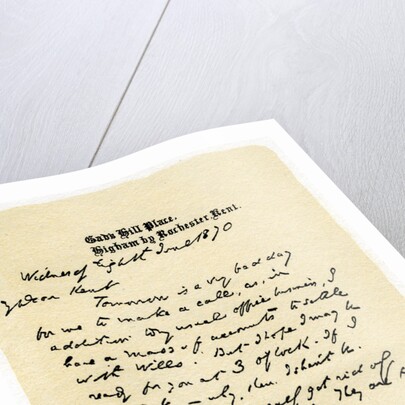 Gad's Hill Place,
Higham by Rochester, Kent.
Wednesday Eighth June 1870
My dear Kent
Tomorrow is a very bad day
for me to make a call, as, in
addition to my usual office business, I
have a mass of accounts to settle
with Wills. But I hope I may be
ready for you at 3 o'clock. If I
can't be - why, then I shan't be.
get rid of
They are